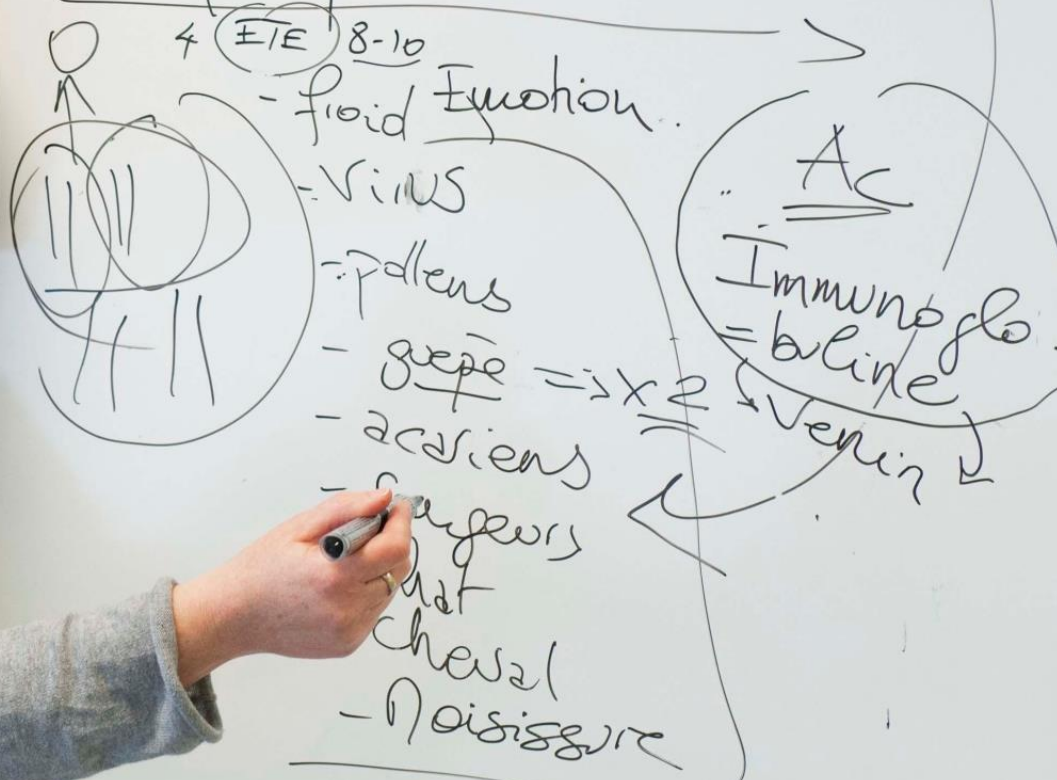 4 ETE 8-10
- froid Emotion.
- Virus
- pollens
- guepe => x 2
- acariens
cheval
- Moisissure
Ac
Immunoglo
= buline
Venin